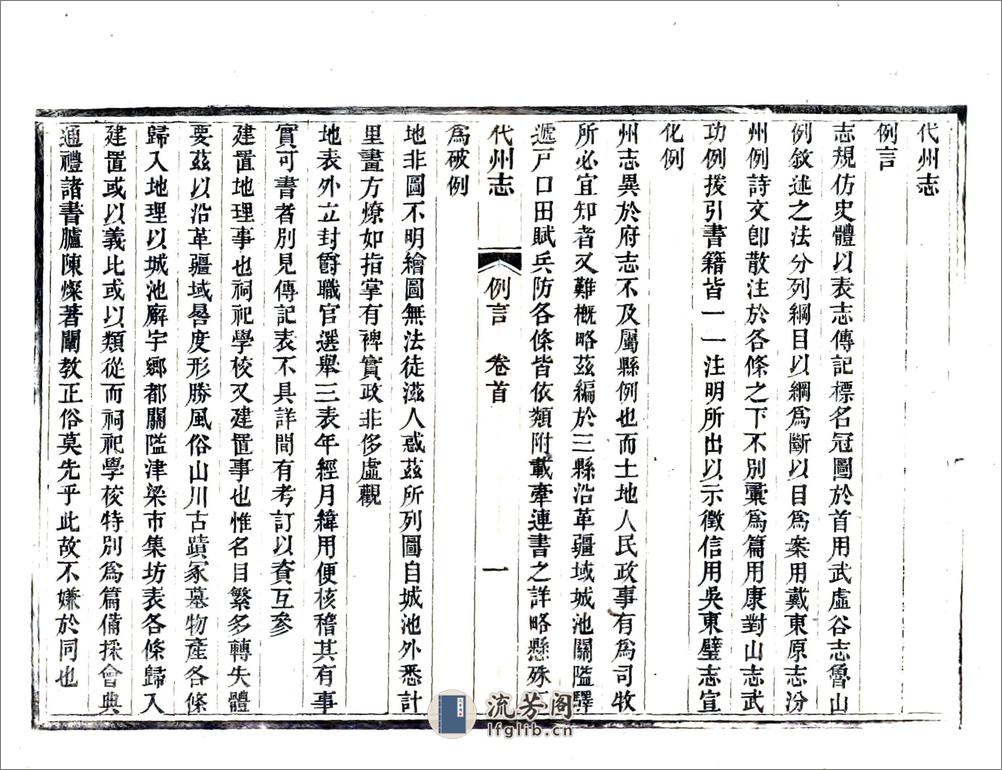 代州志
例言
志規仿史體以表志傳記標名冠圖於首用武虛谷志魯山
例敘述之法分列綱目以綱爲斷以目爲案用戴東原志汾
州例詩文卽散注於各條之下不別彙爲篇用康對山志武
功例援引書籍皆一一注明所出以示徵信用吳東璧志宣
化例
州志異於府志不及屬縣例也而土地人民政事有爲司牧
所必宜知者又難概略茲編於三縣沿革疆域城池關隘驛
遞戸口田賦兵防各條皆依類附載牽連書之詳略懸殊
代州志 例言 卷首 一
爲破例
地非圖不明繪圖無法徒滋人惑茲所列圖自城池外悉計
里畫方燎如指掌有裨實政非侈虛觀
地表外立封爵職官選舉三表年經月緯用便核稽其有事
實可書者別見傳記表不具詳間有考訂以資互參
建置地理事也祠祀學校又建置事也惟名目繁多轉失體
要茲以沿革疆域晷度形勝風俗山川古蹟冢墓物產各條
歸入地理以城池廨宇鄉都關隘津梁市集坊表各條歸入
建置或以義比或以類從而祠祀學校特別爲篇備採會典
通禮諸書臚陳燦著闡教正俗莫先乎此故不嫌於同也
流芳阁
lfglib.cn